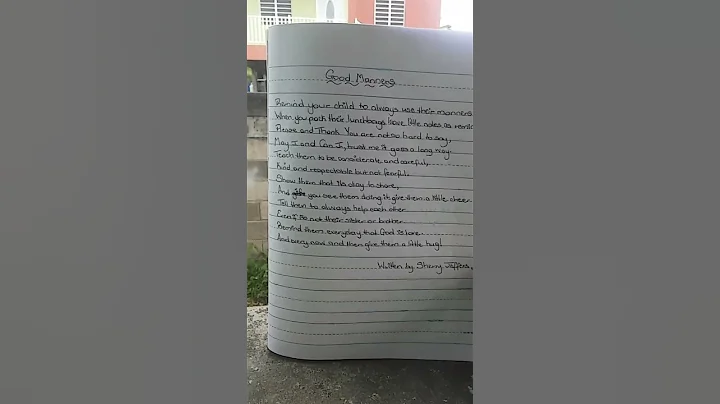 Good Manners
Remind your child to always use their manners
When you pack their lunchbags have little notes as
Please and Thank You are not so hard to say,
May I and Can I, trust me it goes a long way.
Teach them to be considerate and careful,
Kind and respectable but not fearful.
Show them that its okay to share,
And if you see them doing it give them a little cheer.
Tell them to always help each other
Even if its not their sister or brother.
Remind them everyday that God is love.
And every now and then give them a little hug!
Written by Sherry Jeffers.